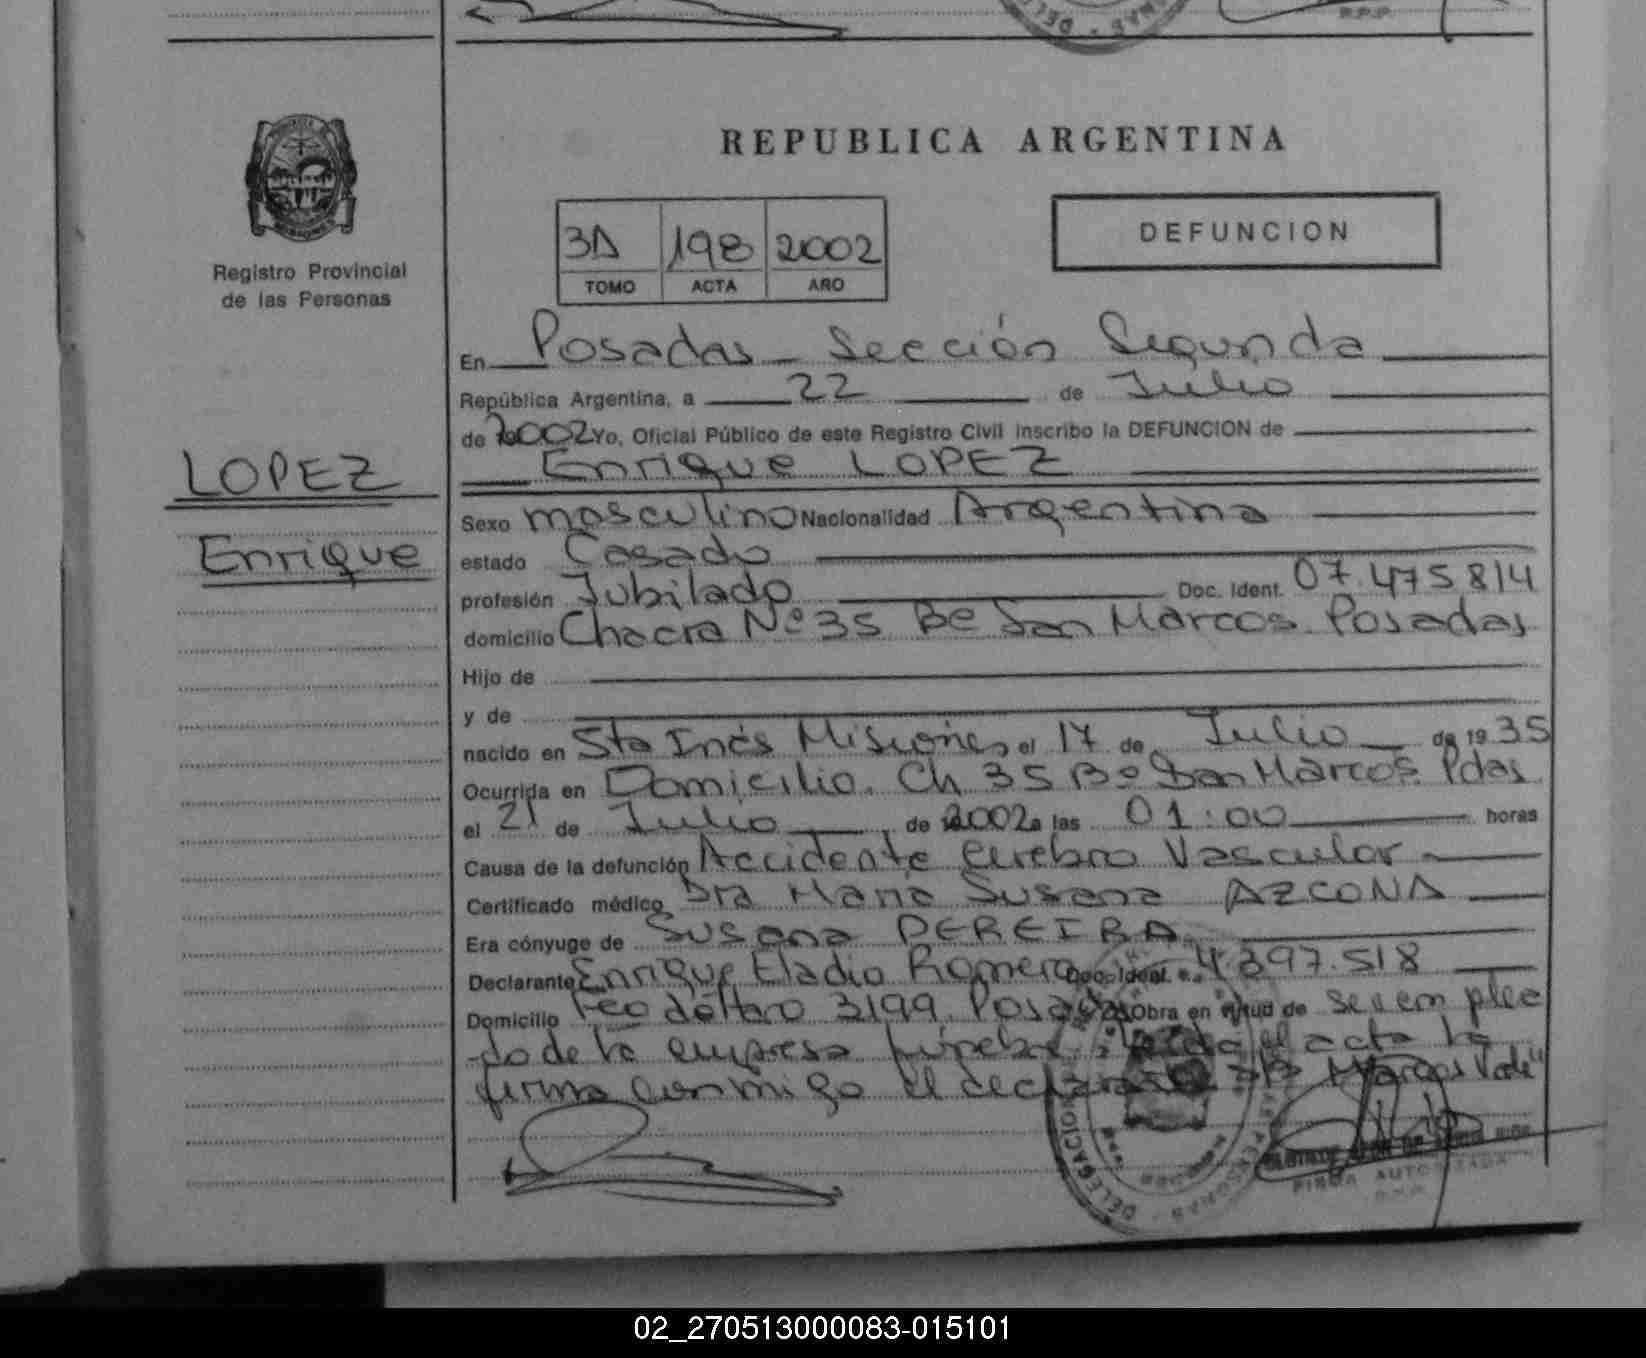 R.P.P.
REPUBLICA ARGENTINA
Registro Provincial
de las Personas
3D 198 2002
TOMO ACTA AÑO
DEFUNCION
En Posadas - Sección Segunda
República Argentina, a 22 de Julio
de 2002 Yo, Oficial Público de este Registro Civil inscribo la DEFUNCION de
LOPEZ
Enrique
Enrique LOPEZ
Sexo masculino Nacionalidad Argentina
estado Casado
profesión Jubilado Doc. Ident. 07.475814
domicilio Chacra Nº 35 Bº San Marcos. Posadas
Hijo de
y de
nacido en Sta Inés Misiones el 17 de Julio de 1935
Ocurrida en Domicilio. Ch 35 Bº San Marcos. Pdas
el 21 de Julio de 2002 a las 01:00 horas
Causa de la defunción Accidente Cerebro Vascular
Certificado médico Dra Maria Susana AZCONA
Era cónyuge de Susana PEREIRA
Declarante Enrique Eladio Romero Doc. Ident. 4.397.518
Domicilio 3199 Posadas Obra en virtud de ser emplea
do de la empresa fúnebre el acta la
firma conmigo el declarante
FIRMA AUTORIZADA
R.P.P.
02_270513000083-015101